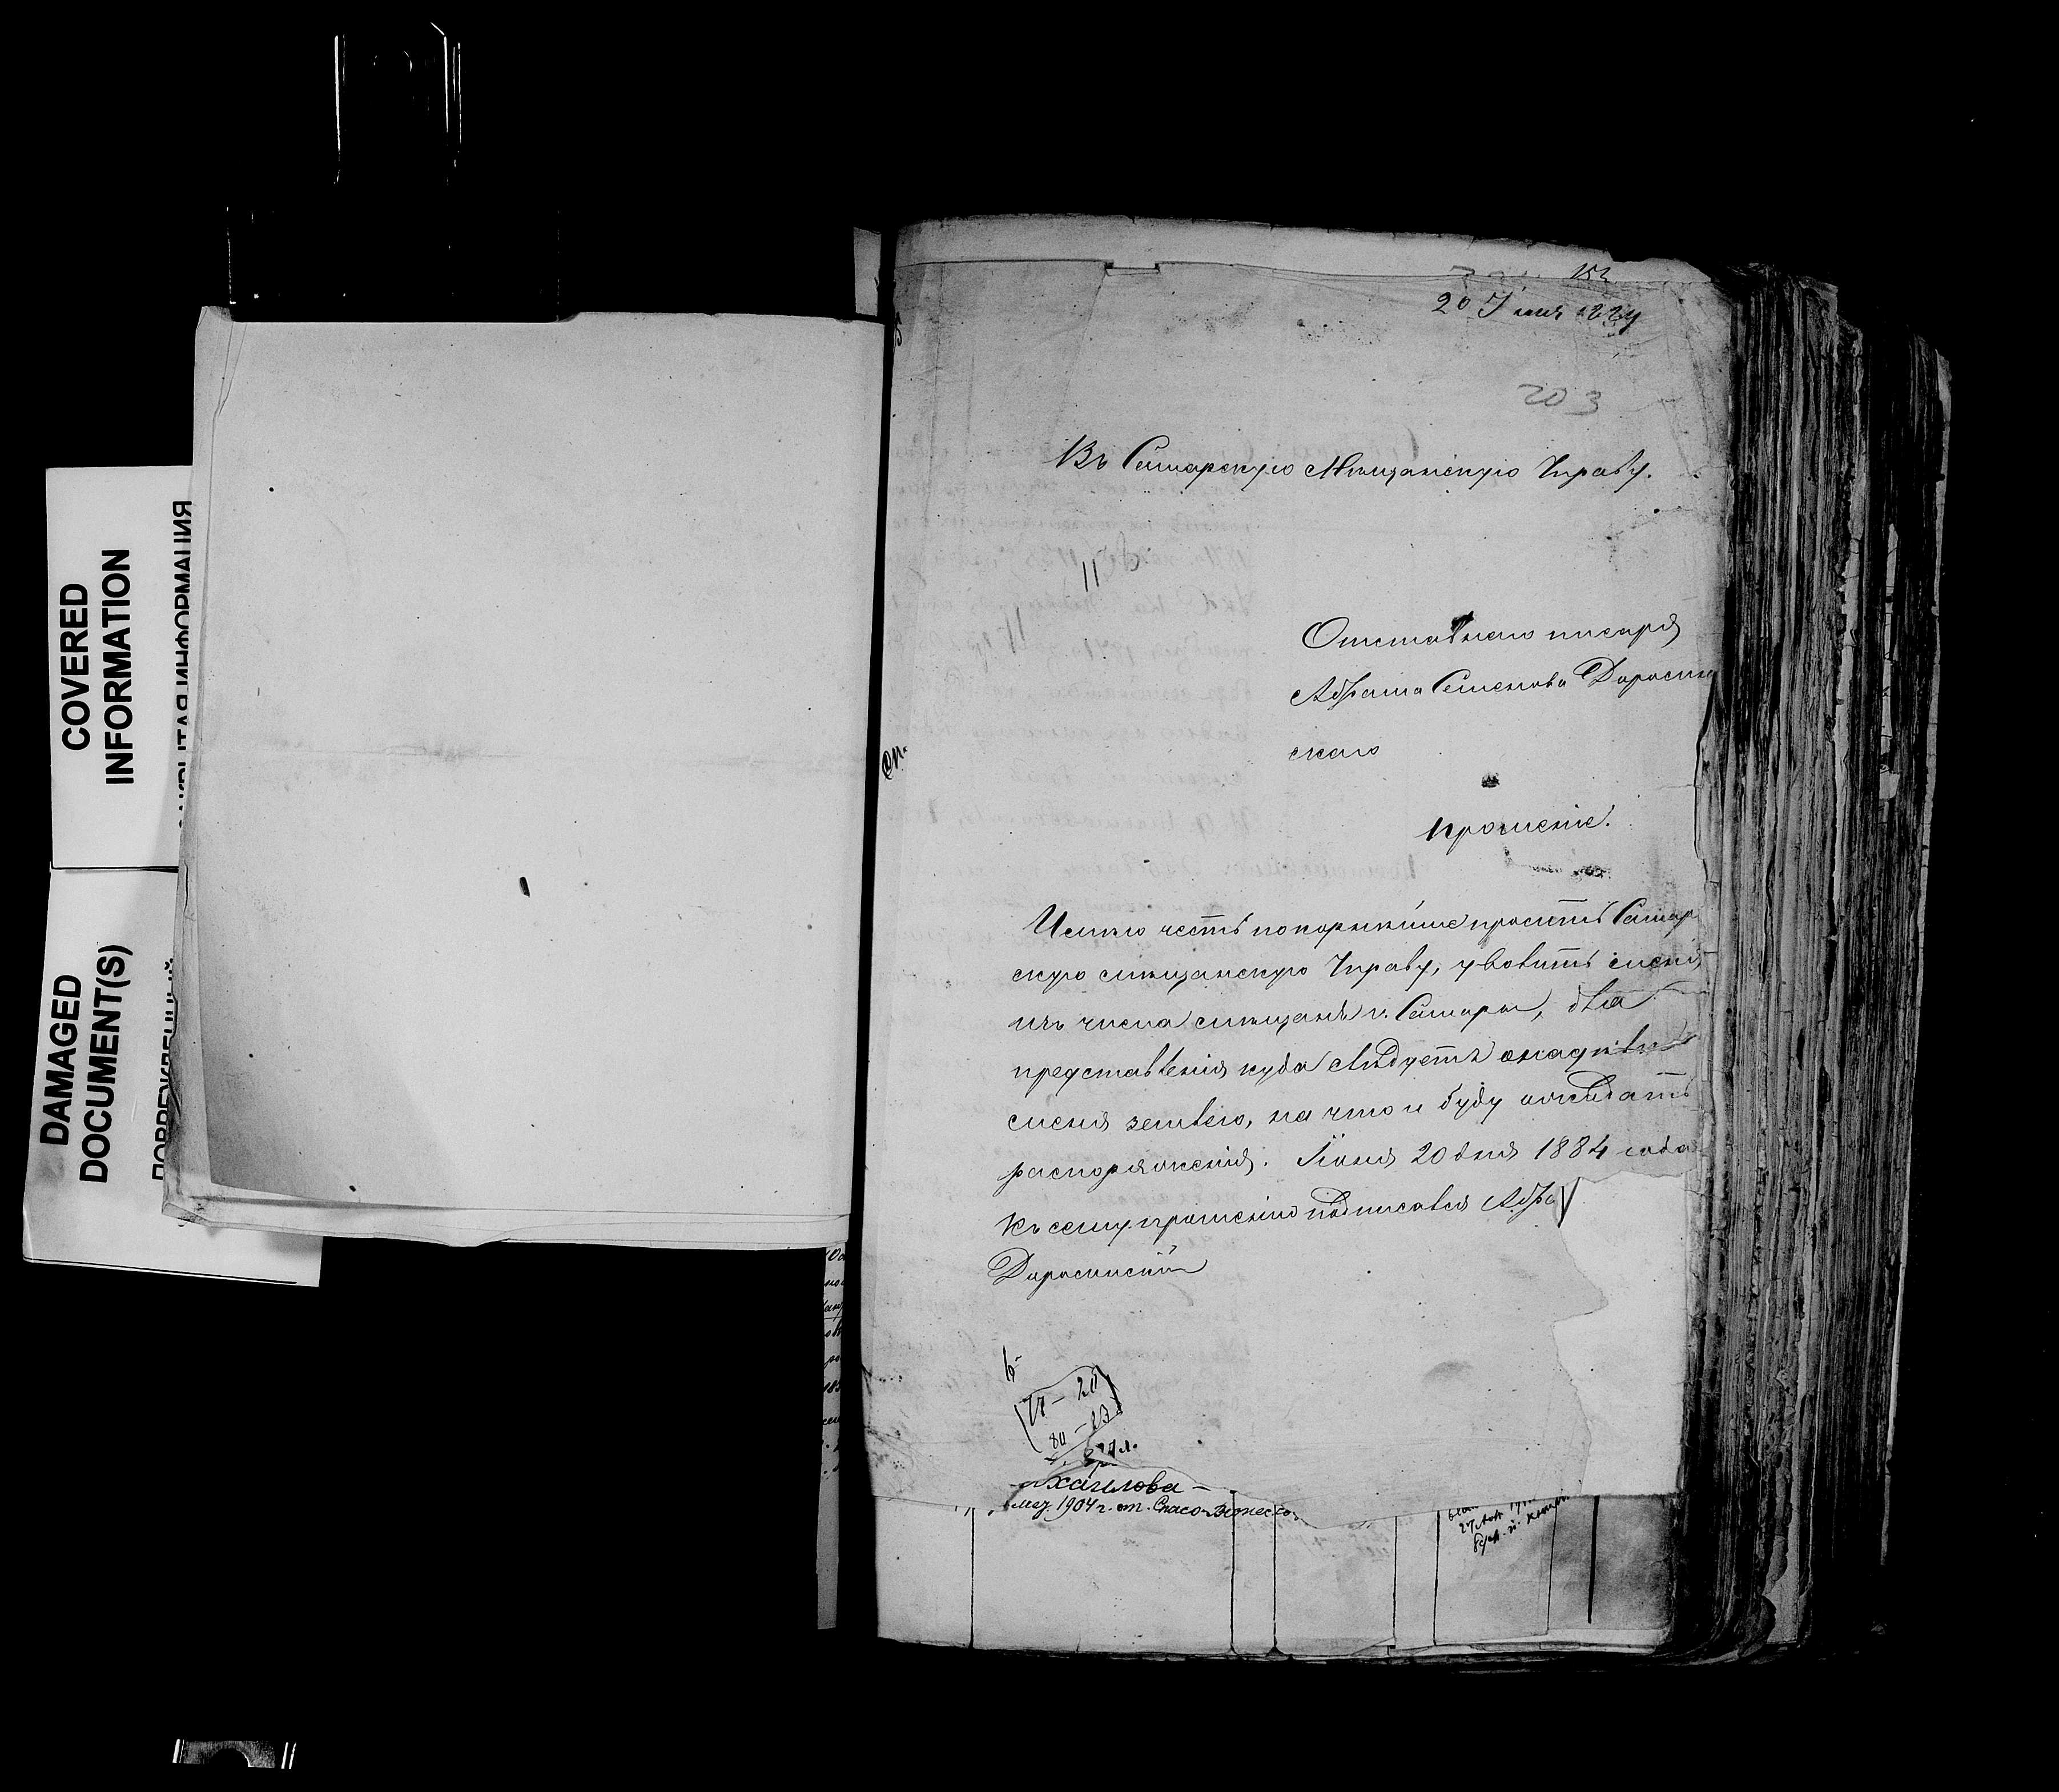 COVERED
INFORMATION
DAMAGED
DOCUMENT(S)
152
20 Іюня 1884
203
Въ Самарскую Мѣщанскую Управу.
Отставнаго писаря
Абрама Семенова Доросин
скаго
прошеніе.
Имѣю честь покорнѣйше просить Самар
скую мѣщанскую Управу, уволить меня
изъ числа мѣщанъ г. Самары, для
представленія куда слѣдуетъ
меня землею, на что и буду ожидать
распоряженія. Іюня 20 дня 1884 года
Къ сему прошенію подписался Абра
Доросинскій
хайлова
1904 г. от. Спасо-Вознес